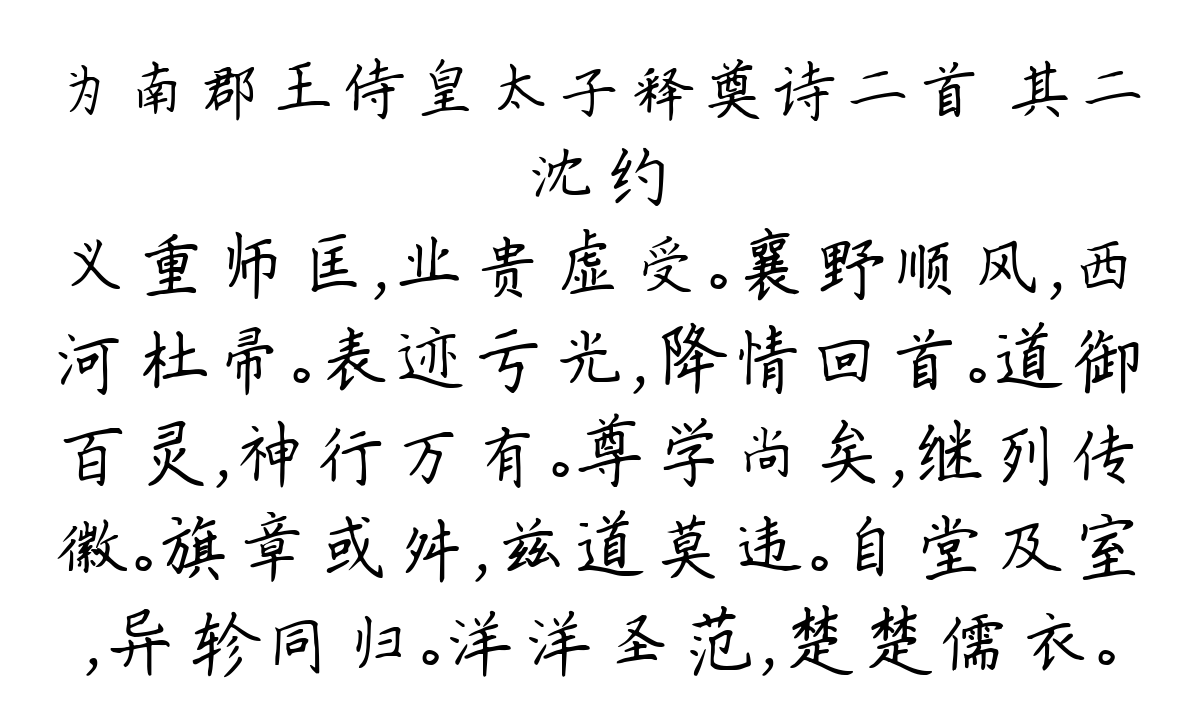 为南郡王侍皇太子释奠诗二首 其二
沈约
义重师匡,业贵虚受。襄野顺风,西
河杜帚。表迹亏光,降情回首。道御
百灵,神行万有。尊学尚矣,继列传
徽。旗章或舛,兹道莫违。自堂及室
,异轸同归。洋洋圣范,楚楚儒衣。